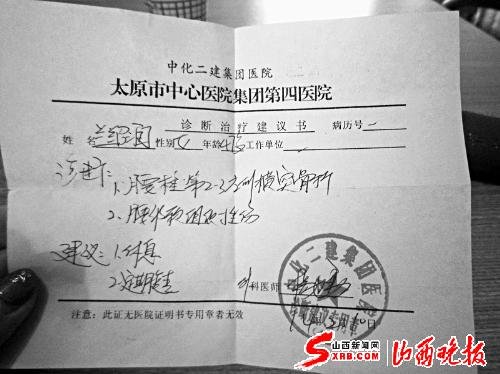 中化二建集团医院
太原市中心医院集团第四医院
诊断治疗建议书 病历号
姓名 性别 女 年龄 工作单位
诊断:1、腰椎第2-3左侧横突骨折
2、腰部软组织挫伤
建议:1.休息
2.定期复查
外科医师
中化二建集团医院
注意:此证无医院证明书专用章者无效
山西新闻网
SXRB.COM
山西晚报